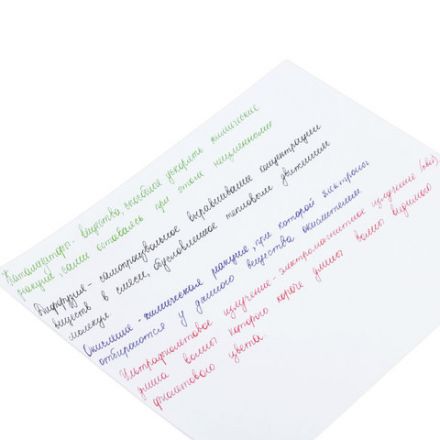 Катализаторы - вещества, способные ускорять химические
реакции, сами оставаясь при этом неизменными
Диффузия - самопроизвольное выравнивание концентрации
веществ в смеси, обусловленное тепловым движением
молекул.
Окисление - химическая реакция, при которой электроны
отбираются у данного вещества окислителем
Ультрафиолетовое излучение - электромагнитное излучение (свет)
длина волны которого короче длины волны видимого
фиолетового цвета.